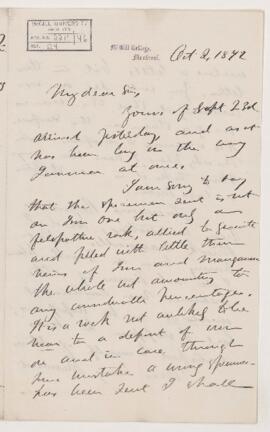 McGill College,
Montreal.
Oct 2, 1872
My dear Sir,
Yours of Sept 23d
arrived yesterday and as it
has been long on the way
I answer at once.
I am sorry to say
that the specimen sent is not
an Iron one but only a
felspathic rock, allied to
and filled with little
veins of Iron and manganese
the whole not amounting to
any considerable percentage.
It is a rock not unlikely to be
near to a deposit of iron
ore and in case, through
some mistake a wrong specimen
has been sent I shall